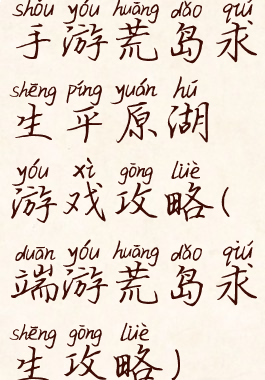 shǒu yóu huāng dǎo qiú
手游荒岛求
shēng píng yuán hú
生平原湖
yóu xì gōng lüè
游戏攻略(
duān yóu huāng dǎo qiú
端游荒岛求
shēng gōng lüè
生攻略)